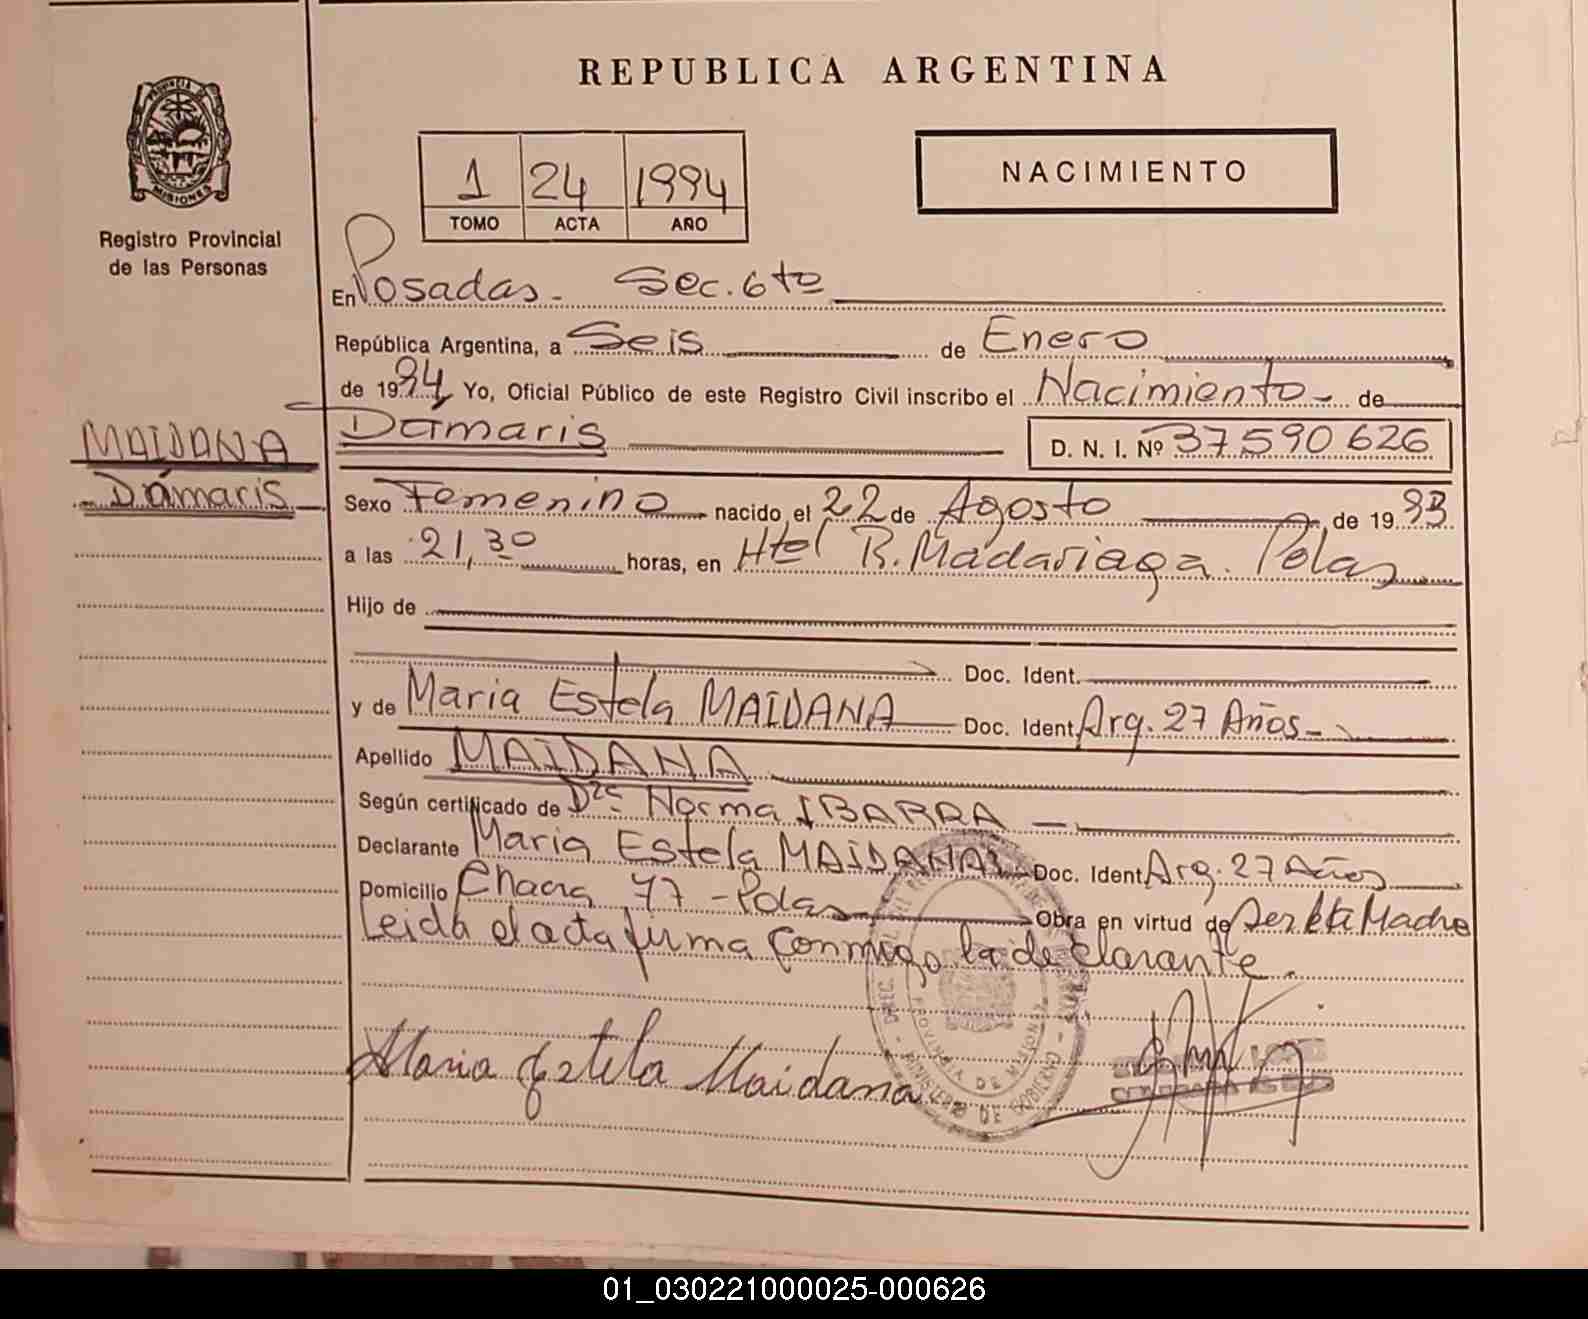 REPUBLICA ARGENTINA
PROVINCIA DE
MISIONES
Registro Provincial
de las Personas
1 24 1994
TOMO ACTA AÑO
NACIMIENTO
En Posadas - Sec. 6ta
República Argentina, a Seis de Enero
de 1994 Yo, Oficial Público de este Registro Civil inscribo el Nacimiento - de
MAIDANA
Dámaris
Dámaris D. N. I. Nº 37590626
Sexo Femenino nacido el 22 de Agosto de 1993
a las 21,30 horas, en Htol R. Madariaga. Pdas
Hijo de
Doc. Ident.
y de Maria Estela MAIDANA Doc. Ident. Arg. 27 Años -
Apellido MAIDANA
Según certificado de Norma IBARRA
Declarante Maria Estela MAIDANA Doc. Ident. Arg. 27 Años
Domicilio Chacra 77 - Pdas Obra en virtud de Ser la Madre
Leida el acta firma conmigo la declarante.
Maria Estela Maidana
PROVINCIA DE MISIONES
MINISTERIO DE GOBIERNO
01_030221000025-000626